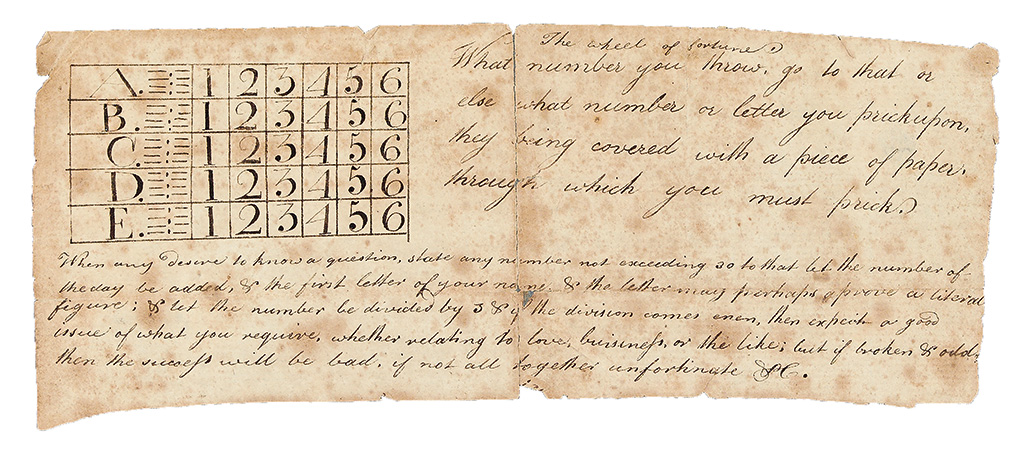 A. 1 2 3 4 5 6
B. 1 2 3 4 5 6
C. 1 2 3 4 5 6
D. 1 2 3 4 5 6
E. 1 2 3 4 5 6
The wheel of fortune.
What number you throw, go to that or
else what number or letter you prick upon,
they being covered with a piece of paper,
through which you must prick.
When any desire to know a question, state any number not exceeding 30 to that let the number of
the day be added, & the first letter of your name, & the letter may perhaps prove a literal
figure; & let the number be divided by 3 & if the division comes even, then expect a good
issue of what you require, whether relating to love, buisiness, or the like; but if broken & odd,
then the success will be bad, if not all together unfortunate &c.